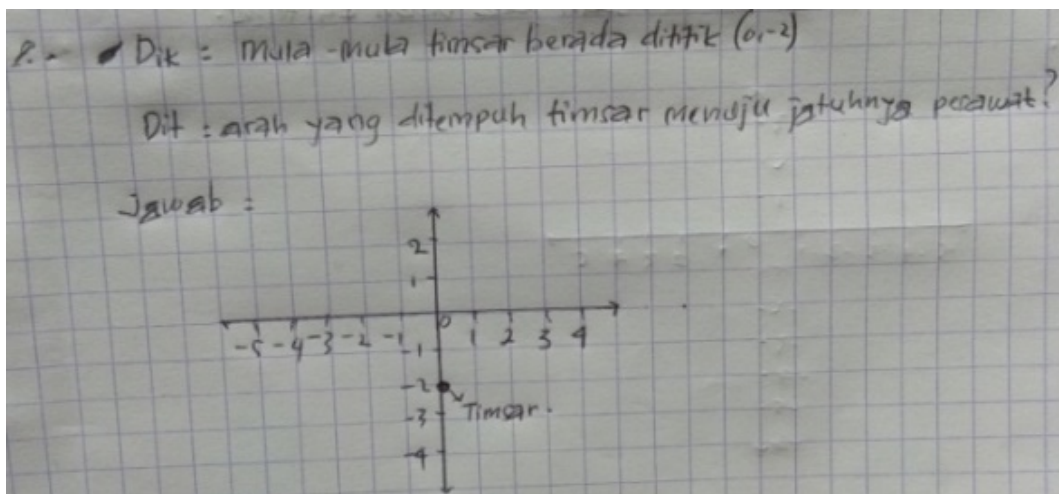 8. Dik : Mula-mula timsar berada dititik (0,-2)
Dit : arah yang ditempuh timsar menuju jatuhnya pesawat?
Jawab :
2
1
-5 -4 -3 -2 -1 0 1 2 3 4
-1
-2
Timsar.
-3
-4